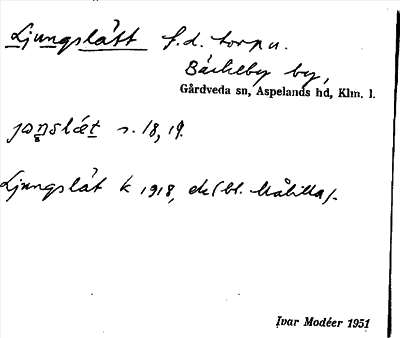 Ljungslätt f.d. torp u.
Bäckeby by,
Gårdveda sn, Aspelands hd, Klm. l.
s. 18, 19.
Ljungslät k 1918, ek (bl. Målilla).
Ivar Modéer 1951